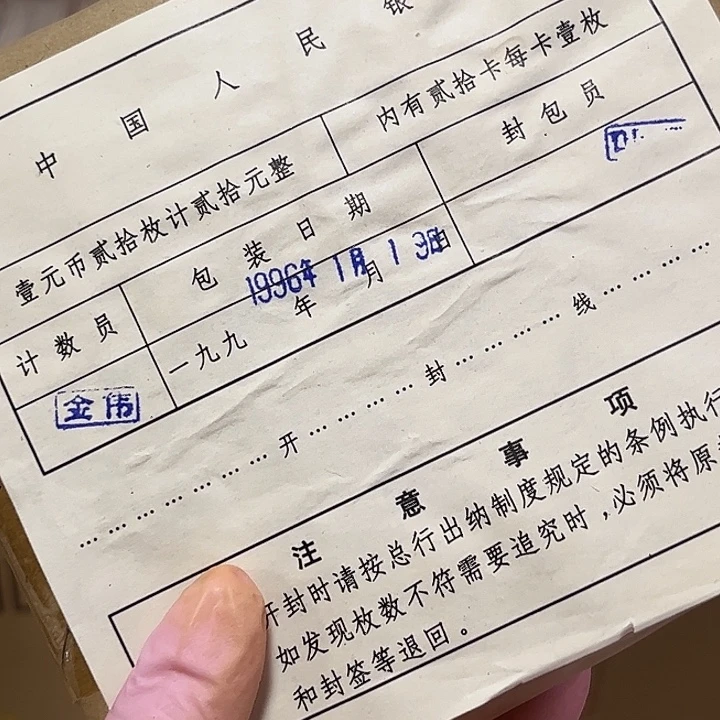 中国人民银
壹元币贰拾枚计贰拾元整
内有贰拾卡每卡壹枚
计数员
包装日期
封包员
金伟
1996年1月13日
一九九 年 月 日
开封线
注意事项
开封时请按总行出纳制度规定的条例执行
如发现枚数不符需要追究时，必须将原
和封签等退回。